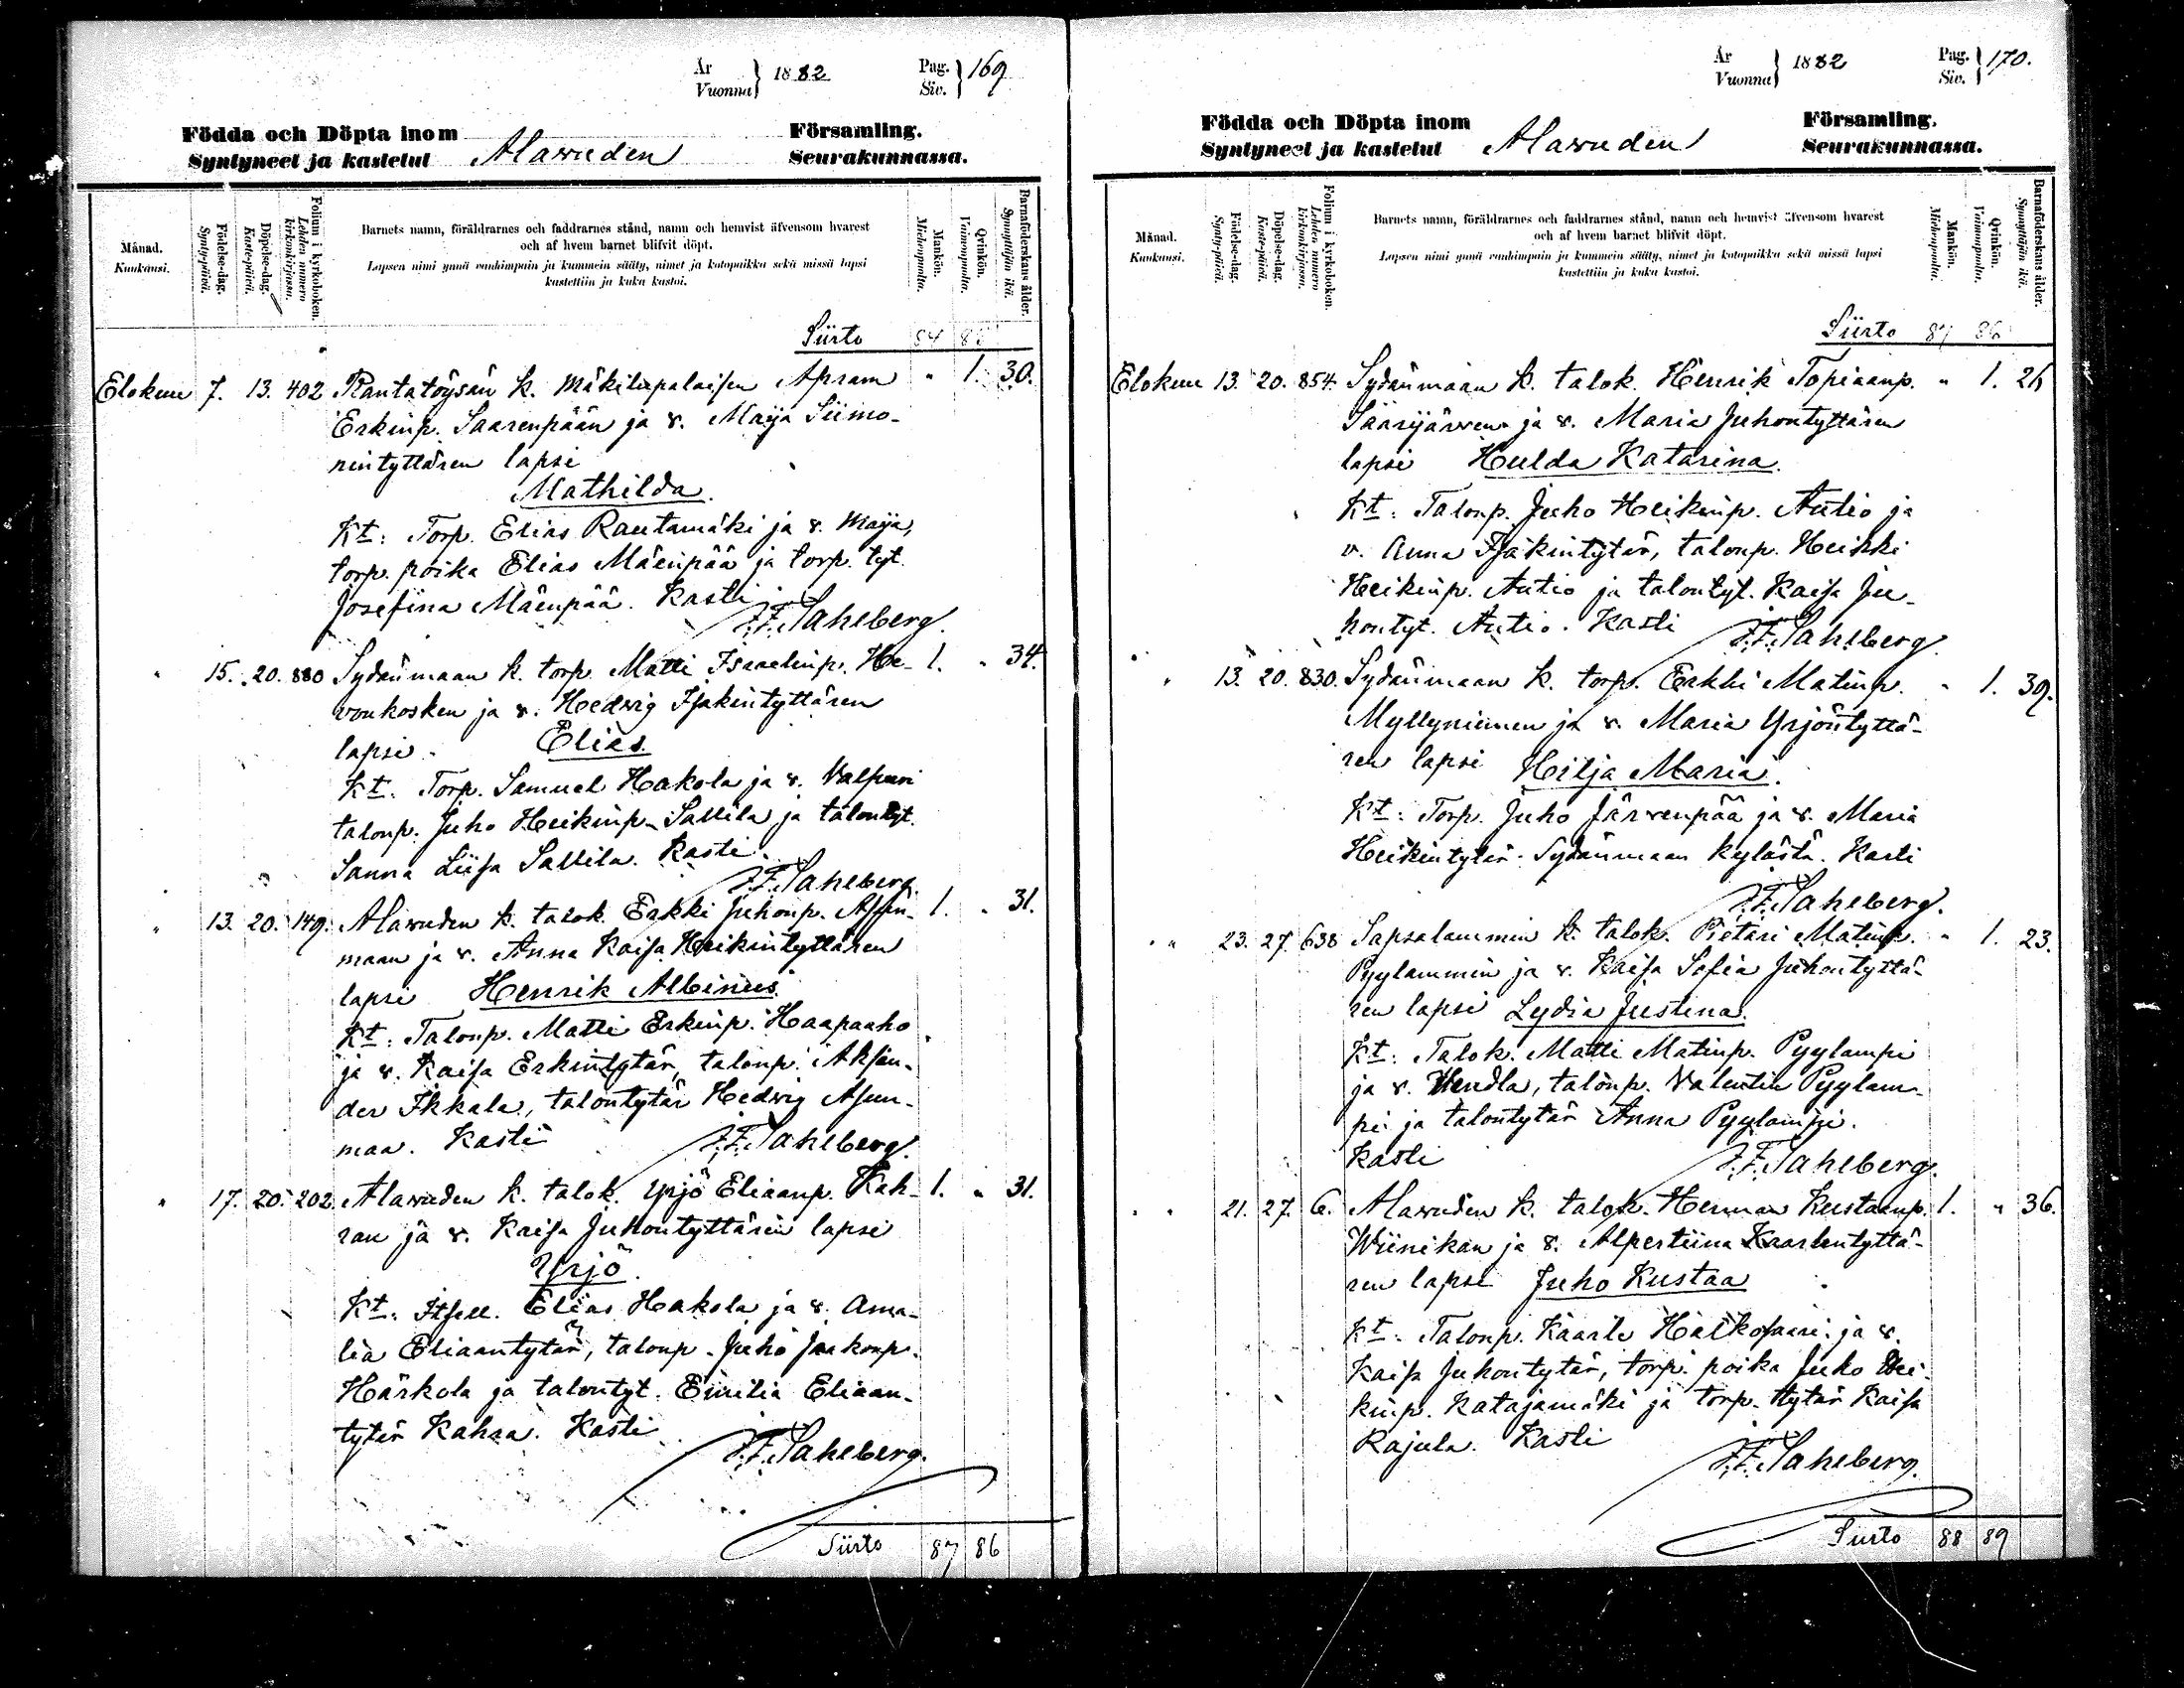 År
Vuonna } 1882
Pag.
Siv. } 169
Födda och Döpta inom
Syntyneet ja kastetut
Alawuden
Församling.
Seurakunnassa.
Månad.
Kuukausi.
Födelse-dag.
Synty-päivä.
Döpelse-dag.
Kaste-päivä.
Folium i kyrkoboken.
Lehden numero kirkonkirjassa.
Barnets namn, föräldrarnes och faddrarnes stånd, namn och hemvist äfvensom hvarest
och af hvem barnet blifvit döpt.
Lapsen nimi ynnä vanhimpain ja kummein sääty, nimet ja kotopaikka sekä missä lapsi
kastettiin ja kuka kastoi.
Mankön.
Miehenpuolta.
Qvinkön.
Vaimonpuolta.
Barnaföderskans ålder.
Synnyttäjän ikä.
Siirto 84 85
Elokuu 7. 13. 402 Rantatöysän k. Mäkitupalaisen Apram " 1. 30.
Erkinp. Saarenpään ja v. Maija Siimo-
nintyttären lapsi
Mathilda.
Kt: Torp. Elias Rautamäki ja v. Maija,
torp. poika Elias Mäenpää ja torp. tyt.
Josefina Mäenpää. Kasti
J.F. Sahlberg.
" 15. 20. 880 Sydänmaan k. torp. Matti Israelinp. He- 1. " 34.
vonkosken ja v. Hedvig Isakintyttären
lapsi Elias.
Kt. Torp. Samuel Hakola ja v. Valpuri
talonp. Juho Heikinp. Sallila ja talontyt.
Sanna Liisa Sallila. Kasti
J.F. Sahlberg.
" 13. 20. 149. Alawuden k. talok. Erkki Juhonp. Asun- 1. " 31.
maan ja v. Anna Kaisa Heikintyttären
lapsi Henrik Albinus.
Kt: Talonp. Matti Erkinp. Haapaaho
ja v. Kaisa Erkintytär, talonp. Aksan-
der Ikkala, talontytär Hedvig Asun-
maa. Kasti J.F. Sahlberg.
" 17. 20. 202. Alawuden k. talok. Yrjö Eliaanp. Kah- 1. " 31.
ran ja v. Kaisa Juhontyttären lapsi
Yrjö.
Kt: Itsell. Elias Hakola ja v. Ama-
lia Eliaantytär, talonp. Juho Jaakonp.
Härkola ja talontyt. Emilia Eliaan-
tytär Kahra. Kasti
J.F. Sahlberg.
Siirto 87 86
År
Vuonna } 1882
Pag.
Siv. } 170.
Födda och Döpta inom
Syntyneet ja kastetut
Alawuden
Församling.
Seurakunnassa.
Månad.
Kuukausi.
Födelse-dag.
Synty-päivä.
Döpelse-dag.
Kaste-päivä.
Folium i kyrkoboken.
Lehden numero kirkonkirjassa.
Barnets namn, föräldrarnes och faddrarnes stånd, namn och hemvist äfvensom hvarest
och af hvem barnet blifvit döpt.
Lapsen nimi ynnä vanhimpain ja kummein sääty, nimet ja kotopaikka sekä missä lapsi
kastettiin ja kuka kastoi.
Mankön.
Miehenpuolta.
Qvinkön.
Vaimonpuolta.
Barnaföderskans ålder.
Synnyttäjän ikä.
Siirto 87 86
Elokuu 13. 20. 854. Sydänmaan k. talok. Henrik Topiaanp. " 1. 26
Saarijärven ja v. Maria Juhontyttären
lapsi Hulda Katarina.
Kt: Talonp. Juho Heikinp. Autio ja
v. Anna Isakintytär, talonp. Heikki
Heikinp. Autio ja talontyt. Kaisa Ju-
hontyt. Autio. Kasti J.F. Sahlberg.
" 13. 20. 830. Sydänmaan k. torp. Erkki Matinp. " 1. 39.
Myllyniemen ja v. Maria Yrjöntyttä-
ren lapsi Hilja Maria.
Kt: Torp. Juho Järvenpää ja v. Maria
Heikintytär Sydänmaan kylästä. Kasti
J.F. Sahlberg.
" 23. 27. 638 Sapsalammin k. talok. Pietari Matinp. " 1. 23.
Pyylammin ja v. Kaisa Sofia Juhontyttä-
ren lapsi Lydia Justina.
Kt: Talok. Matti Matinp. Pyylampi
ja v. Hendla, talonp. Valentin Pyylam-
pi ja talontytär Anna Pyylampi.
Kasti J.F. Sahlberg.
" 21. 27. 6. Alawuden k. talok. Herman Kustaanp. 1. " 36.
Wiinikan ja v. Alpertiina Kaarlentyttä-
ren lapsi Juho Kustaa
Kt. Talonp. Kaarle Hälkösaari ja v.
Kaisa Juhontytär, torp. poika Juho Hei-
kinp. Katajamäki ja torp. tytär Kaisa
Rajula. Kasti
J.F. Sahlberg.
Siirto 88 89